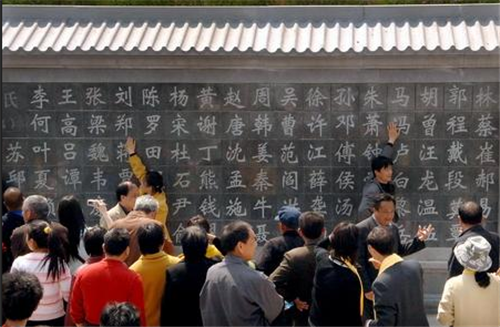 氏 李 王 张 刘 陈 杨 黄 赵 周 吴 徐 孙 朱 马 胡 郭 林
何 高 梁 郑 罗 宋 谢 唐 韩 曹 许 邓 萧 冯 曾 程 蔡
苏 叶 吕 魏 蒋 田 杜 丁 沈 姜 范 江 傅 钟 卢 汪 戴 崔
夏 谭 石 熊 孟 秦 阎 薛 侯 白 龙 段 郝
尹 钱 施 牛 洪 龚 温